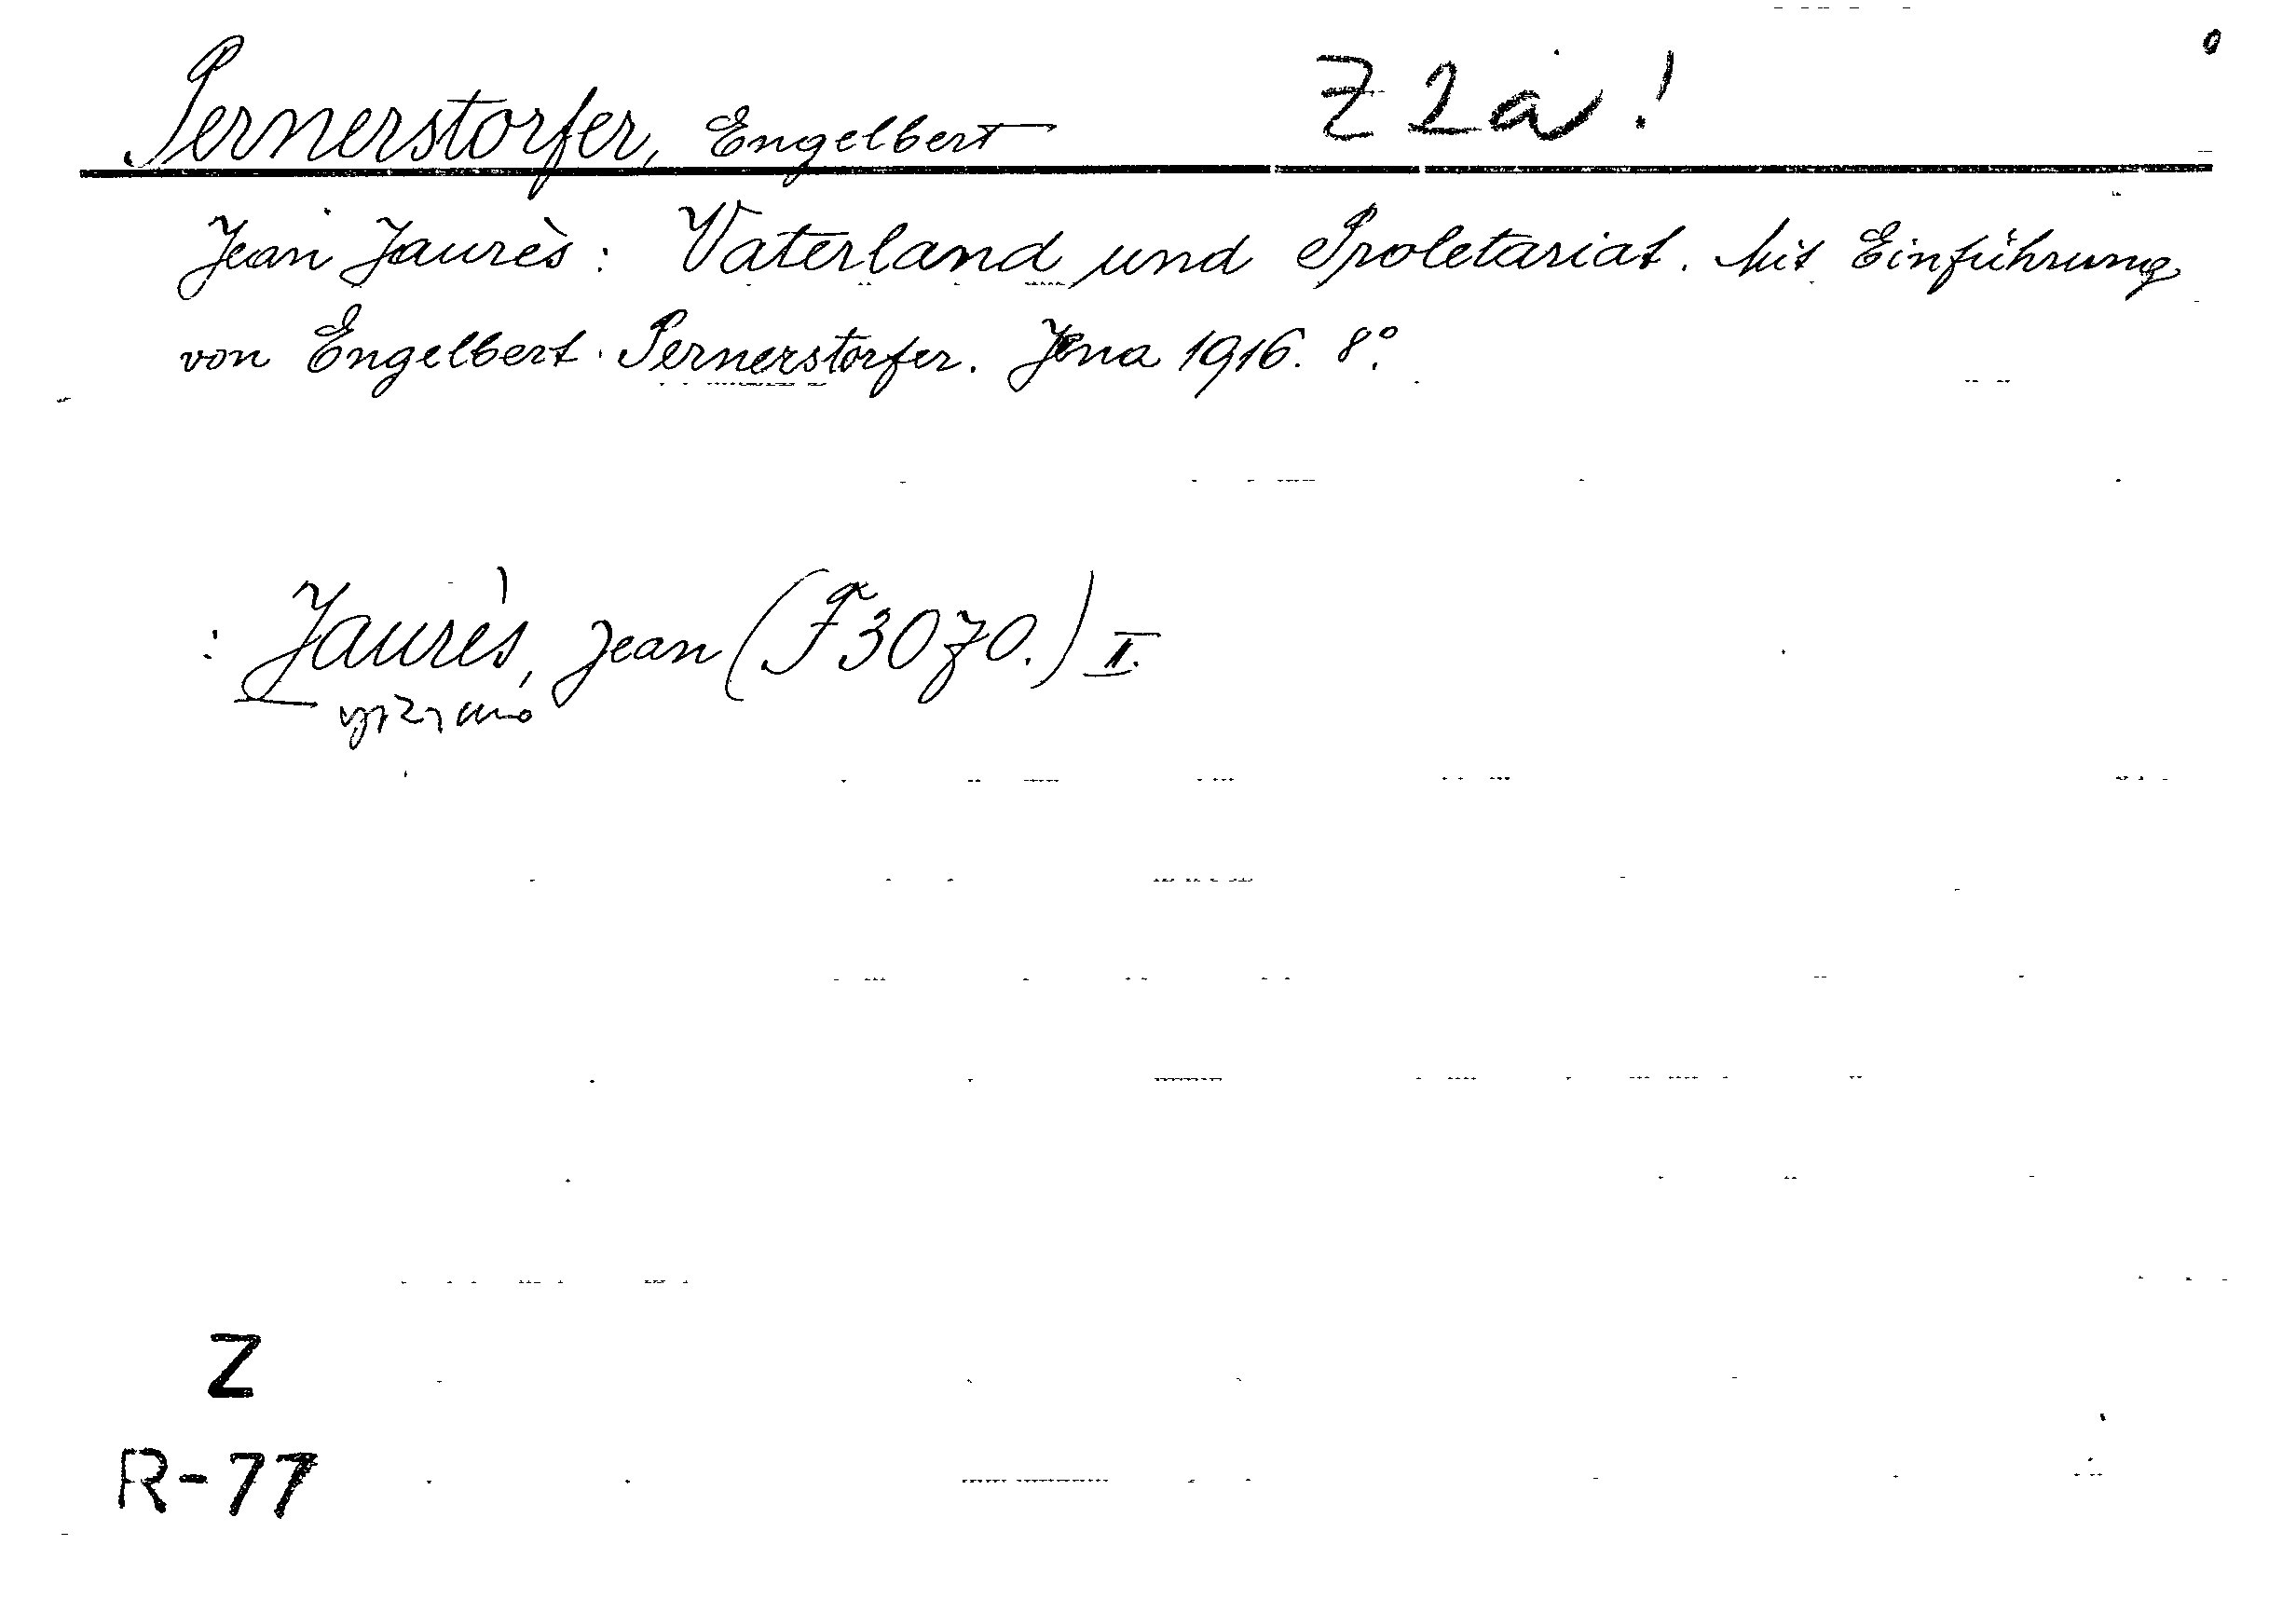 Pernerstorfer, Engelbert Z 2a!
Jean Jaurès: Vaterland und Proletariat. Mit Einführung
von Engelbert Pernerstorfer. Jena 1916. 8°.
: Jaurès, Jean (F3070.) II.
Z
R-77